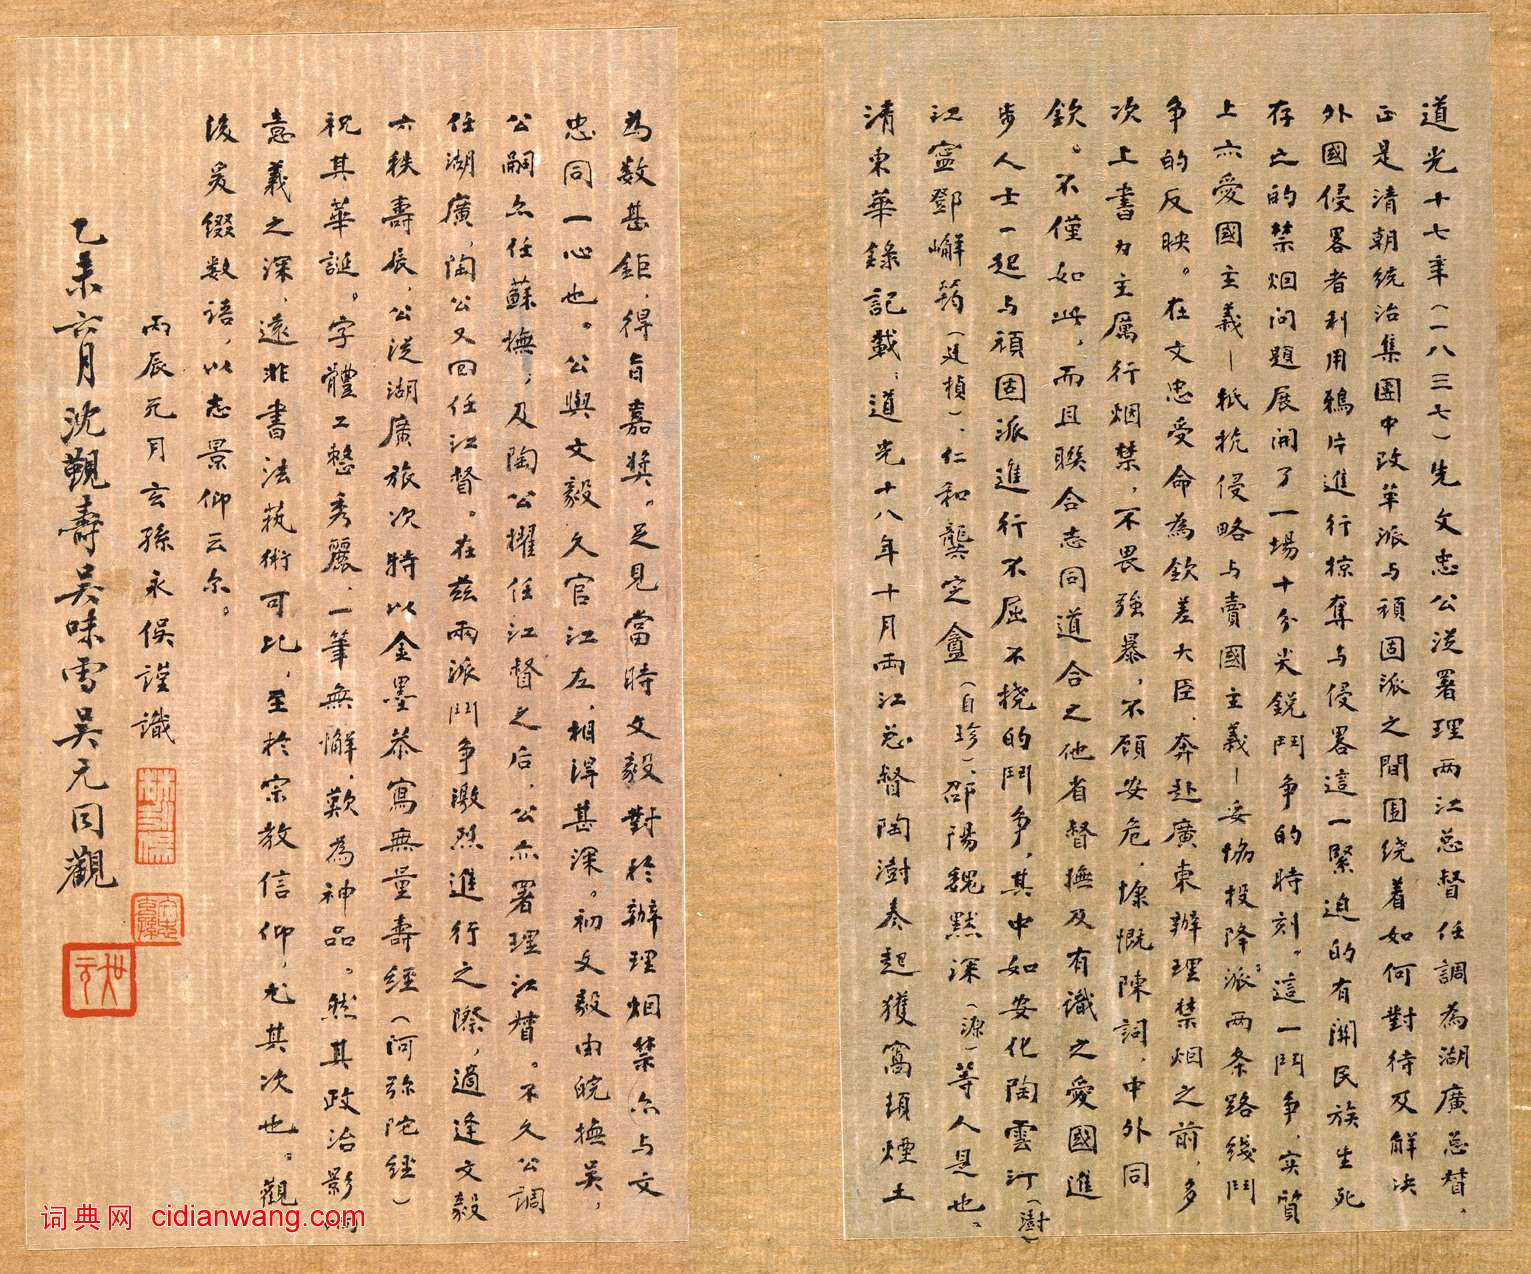 道光十七年(一八三七)先文忠公從署理两江总督任調為湖廣总督，
正是清朝統治集團中改革派与頑固派之間围绕着如何對待及解决
外國侵畧者利用鴉片進行掠奪与侵畧這一緊迫的有關民族生死
存亡的禁烟问題展開了一場十分尖鋭鬥争的時刻。這一鬥争，实質
上亦愛國主義—抵抗侵略与賣國主義—妥协投降派两条路线鬥
争的反映。在文忠受命為欽差大臣，奔赴廣東辦理禁烟之前，多
次上書力主厲行烟禁，不畏強暴，不顧安危，慷慨陳詞，中外同
欽。不僅如此，而且聯合志同道合之他省督撫及有識之愛國進
步人士一起与頑固派進行不屈不撓的鬥争，其中如安化陶雲汀(澍)
江寧鄧嶰筠(廷楨)、仁和龔定盦(自珍)、邵陽魏默深(源)等人是也。
清東華錄記載，道光十八年十月两江总督陶澍奏起獲窩頓煙土
為数甚鉅，得旨嘉獎。足見當時文毅對於辦理烟禁亦与文
忠同一心也。公與文毅久官江左，相得甚深。初文毅由皖撫吴，
公嗣亦任蘇撫，及陶公擢任江督之后，公亦署理江督。不久公調
任湖廣，陶公又回任江督。在兹兩派鬥争激烈進行之際，適逢文毅
六秩壽辰，公從湖廣旅次特以金墨恭寫無量壽經(阿弥陀經)
祝其華誕。字體工整秀麗，一筆無懈，歎為神品。然其政治影响
意義之深，遠非書法藝術可比，至於宗教信仰，尤其次也。觀
後爰綴数語，以志景仰云尔。
丙辰元月玄孫永俁謹識
乙未六月沈觀壽吴味雪吴元同觀
词典网 cidianwang.com